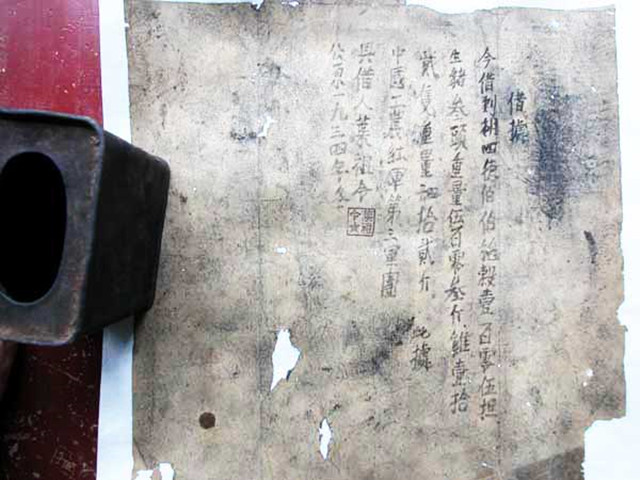 借據
今借到胡四德伯伯稻穀壹百零伍担
生豬叁頭重量伍百零叁斤雞壹拾
貳隻重量肆拾貳斤。此據
中國工農紅軍第三軍團
具借人葉祖令
葉祖令印
公原一九三四年冬